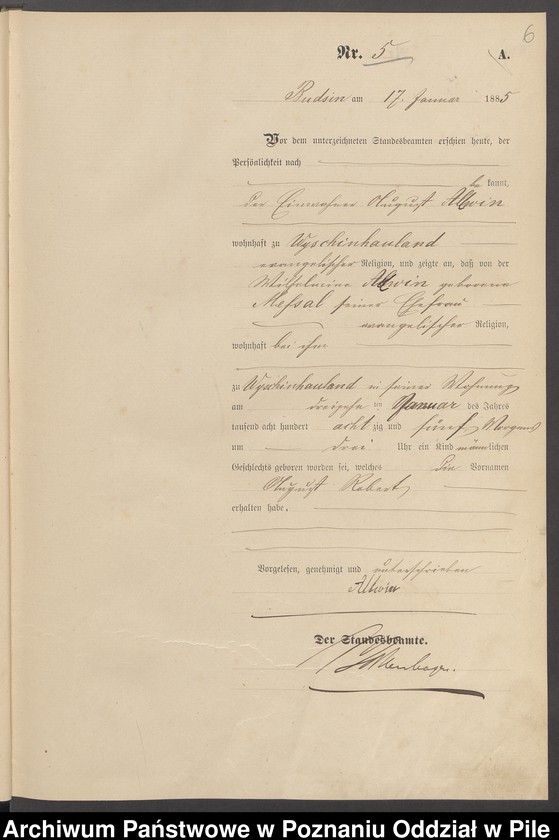 6
Nr. 5 A.
Budsin am 17. Januar 1885
Vor dem unterzeichneten Standesbeamten erschien heute, der
Persönlichkeit nach
be kannt,
der Einwohner August Allwin
wohnhaft zu Wyschinhauland
evangelischer Religion, und zeigte an, daß von der
Wilhelmine Allwin geborene
Messal seiner Ehefrau
evangelischer Religion,
wohnhaft bei ihm
zu Wyschinhauland in seiner Wohnung
am dreizehn ten Januar des Jahres
tausend acht hundert acht zig und fünf Morgens
um drei Uhr ein Kind männlichen
Geschlechts geboren worden sei, welches den Vornamen
August Robert
erhalten habe.
Vorgelesen, genehmigt und unterschrieben
Allwin
Der Standesbeamte.
Archiwum Państwowe w Poznaniu Oddział w Pile